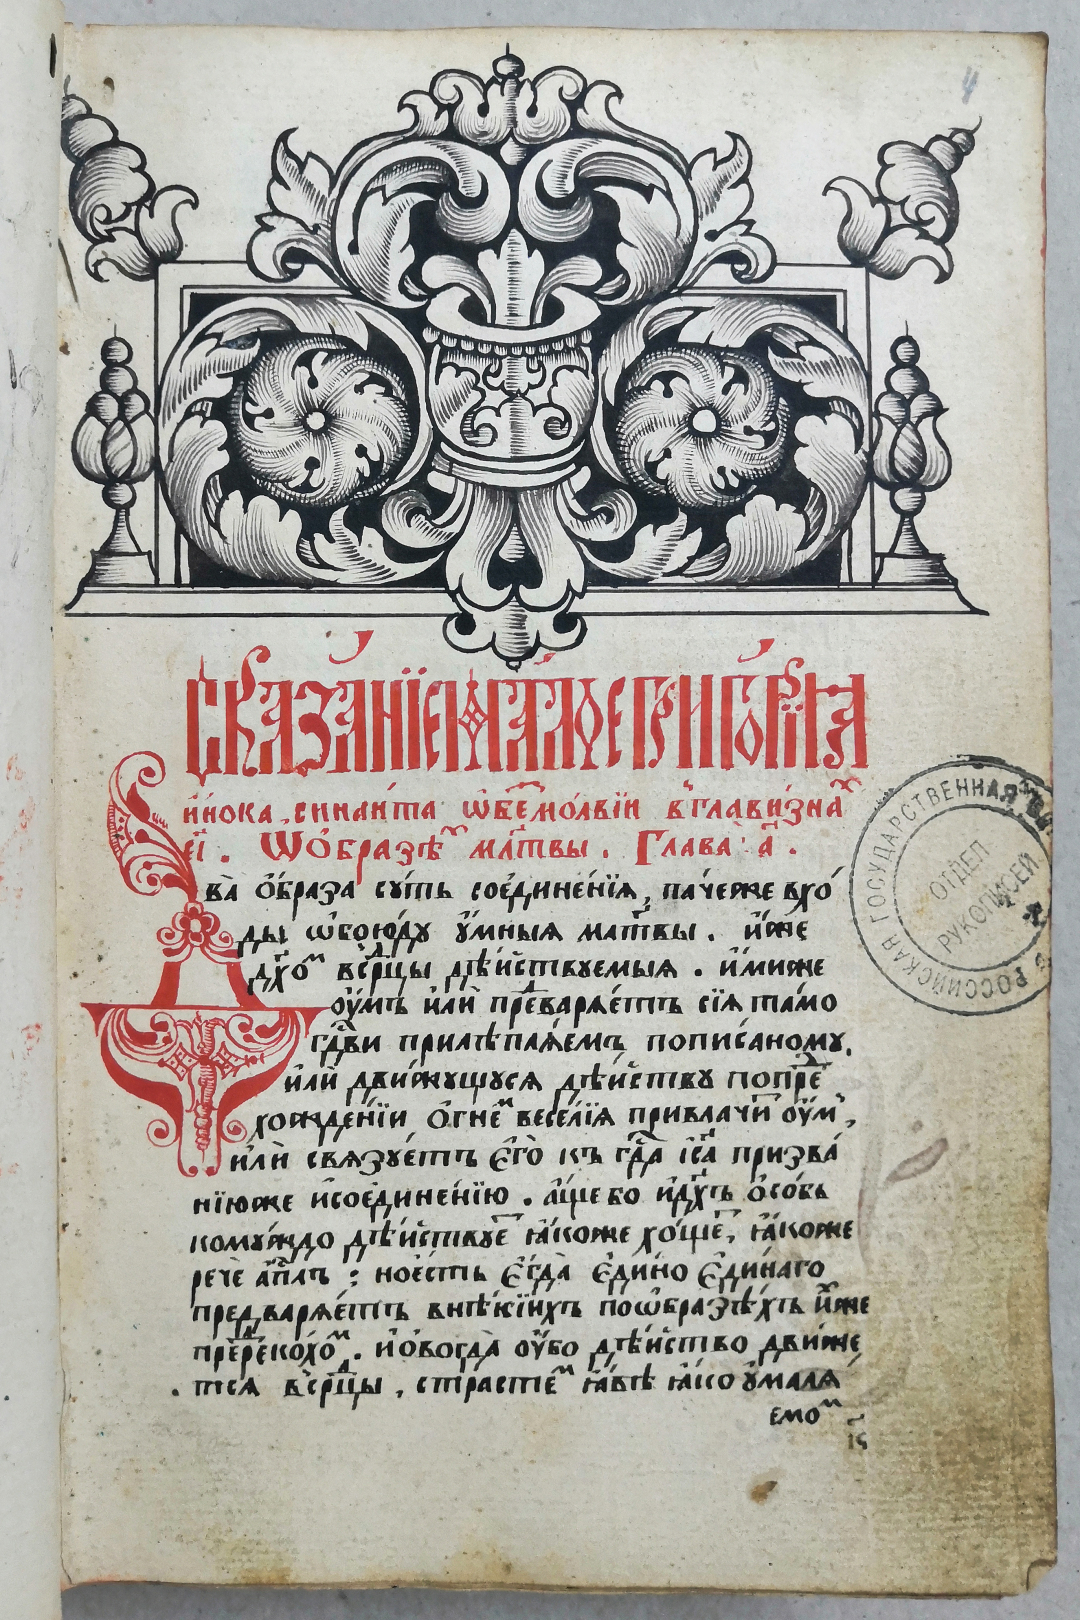 4
Сказа́нїе ст҃а́гѡ григо́рїа
и́нока, сина́ита ѡ҆безмо́лвїи въглави́знаⷯ
е҃і. Ѡ҆ о҆бразѣⷯ мл҃твы. Глава̀ а҃.
Два̀ о҆́браза сꙋ́ть соє҆дине́нїѧ, па́чеже вхо́
ды̀ ѡ҆бою́дꙋ ᲂу҆́мныѧ мл҃твы. и҆́же
дх҃оⷨ въсрⷣцы дѣ́йствꙋемыѧ. и҆́миже
ᲂу҆́мъ и҆лѝ предварѧ́етъ сїѧ̀ та́мо
гдⷭ҇ви прилѣплѧ́емъ попи́саномꙋ,
и҆лѝ дви́жꙋщꙋсѧ дѣ́йствꙋ попре
хожде́нїи ѻ҆́гнеⷨ весе́лїѧ привлачи́т ᲂу҆́мъ,
и҆лѝ свѧзꙋ́етъ є҆го̀ къ гдⷭ҇а і҆са призва́
нїюже и҆соедине́нїю. а҆́ще бо и҆ дх҃ъ ѻ҆со́бь
комꙋ́ждо дѣ́йствꙋет ꙗ҆́коже хо́щет, ꙗ҆́коже
речѐ а҆пⷭ҇лъ; ноє҆́сть є҆гда̀ є҆ди́но є҆ди́наго
предварѧ́етъ внѣ́кїихъ поѡ҆бразѣ́хъ и҆́хже
пререко́хоⷨ. и҆ ѻ҆вогда̀ ᲂу҆́бо дѣ́йство дви́же
тсѧ въсрⷣцы, страсте́ⷨ ꙗ҆́вѣ ꙗ҆́ко ᲂу҆малѧ́
емоⷨ
РОССИЙСКАЯ ГОСУДАРСТВЕННАЯ
ОТДЕЛ
РУКОПИСЕЙ